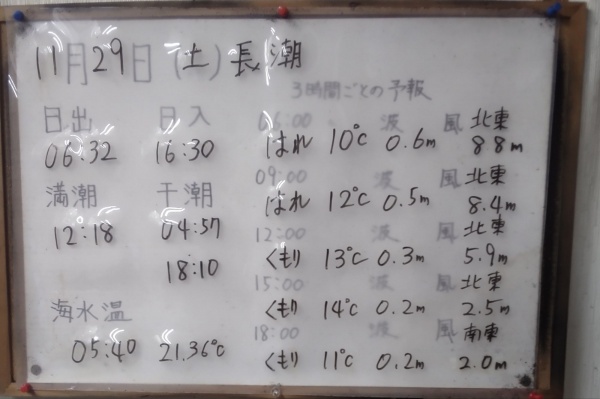 11月29日(土)長潮
3時間ごとの予報
日出 日入
06:32 16:30
満潮 干潮
12:18 04:57
18:10
海水温
05:40 21.36℃
06:00 波 風 北東
はれ 10℃ 0.6m 8.8m
09:00 波 風 北東
はれ 12℃ 0.5m 8.4m
12:00 波 風 北東
くもり 13℃ 0.3m 5.9m
15:00 波 風 北東
くもり 14℃ 0.2m 2.5m
18:00 波 風 南東
くもり 11℃ 0.2m 2.0m